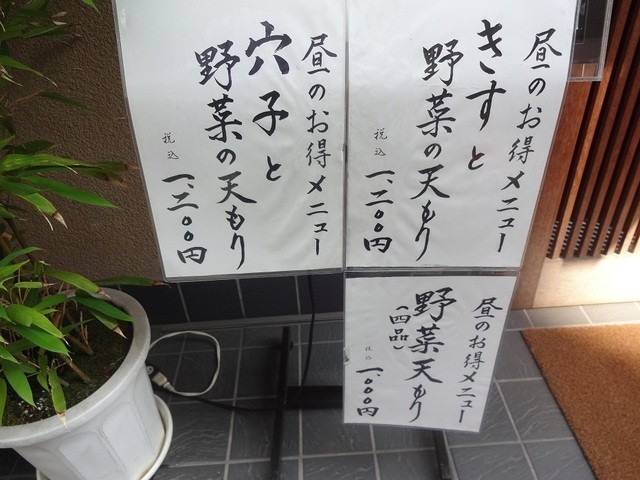 昼のお得メニュー
きすと
野菜の天もり
税込
一、二〇〇円
昼のお得メニュー
穴子と
野菜の天もり
税込
一、二〇〇円
昼のお得メニュー
野菜天もり
(四品)
税込
一、〇〇〇円